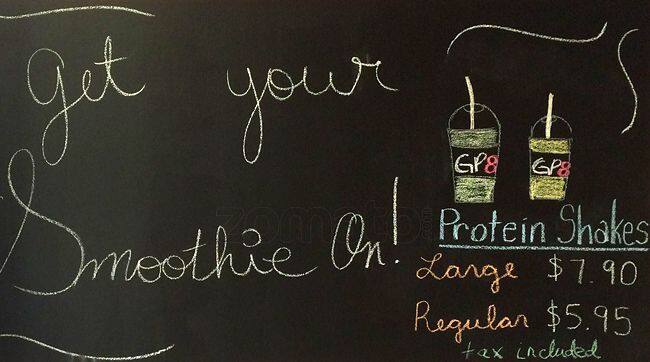 Get your
Smoothie On!
GP8 GP8
Protein Shakes
Large $7.90
Regular $5.95
tax included
zomato